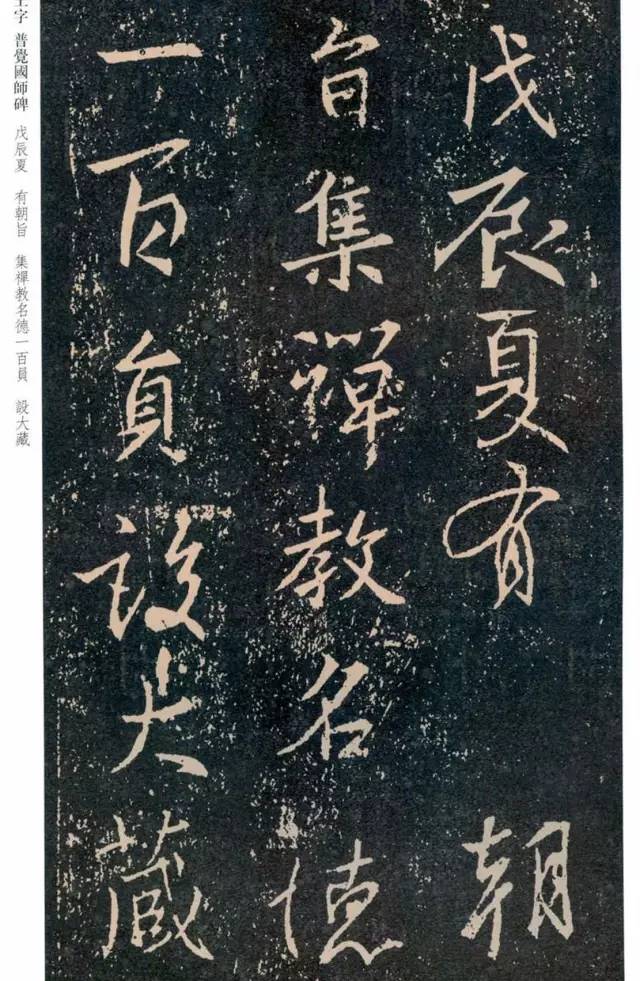 戊辰夏有 朝
旨集禪教名德
一百員設大藏
王字 普覺國師碑 戊辰夏 有朝旨 集禪教名德一百員 設大藏